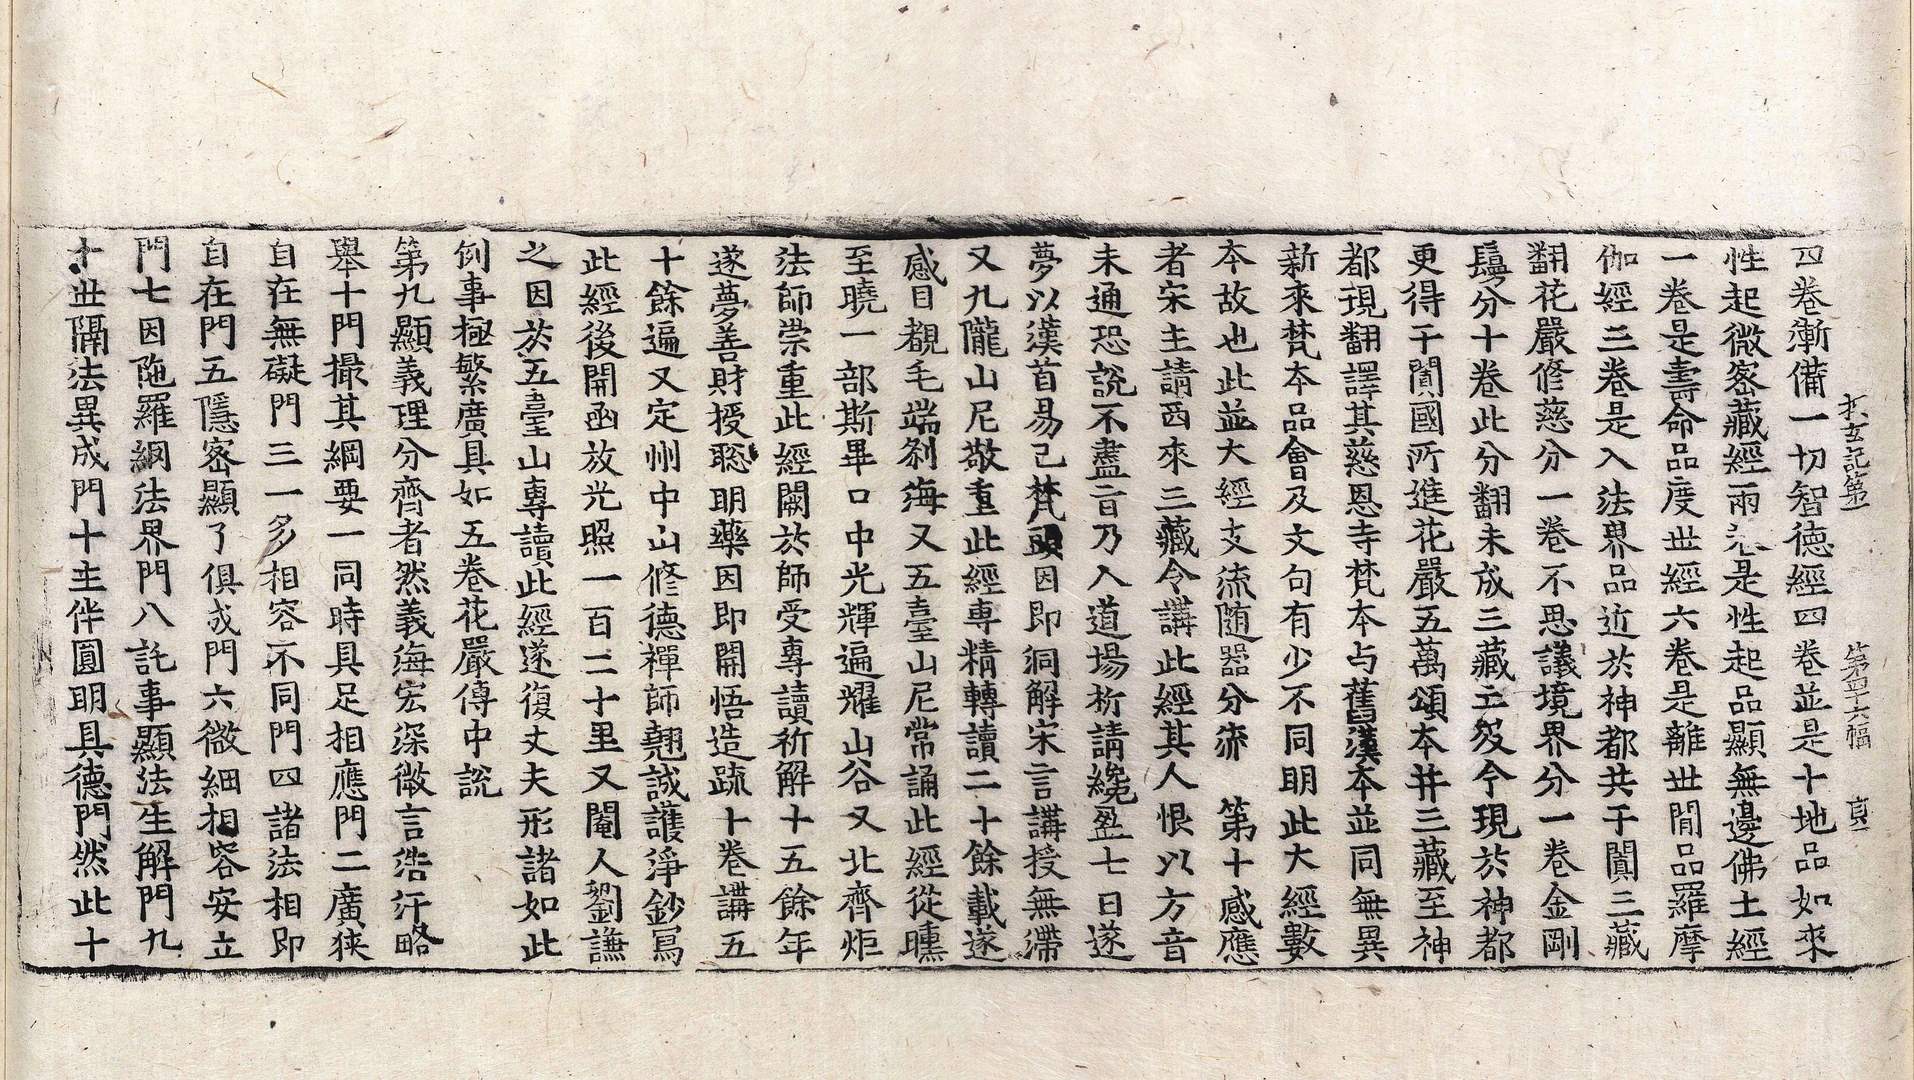 四卷漸備一切智德經四卷並是十地品如來
性起微密藏經兩卷是性起品顯無邊佛土經
一卷是壽命品度世經六卷是離世間品羅摩
伽經三卷是入法界品近於神都共于闐三藏
翻花嚴修慈分一卷不思議境界分一卷金剛
鬘分十卷此分翻未成三藏云歿今現於神都
更得于闐國所進花嚴五萬頌本并三藏至神
都現翻譯其慈恩寺梵本与舊漢本並同無異
新來梵本品會及文句有少不同明此大經數
本故也此並大經支流随器分流　第十感應
者宋主請西來三藏令講此經其人恨以方音
未通恐說不盡旨乃入道場祈請纔盈七日遂
夢以漢首易己梵頭因即洞解宋言講授無滯
又九隴山尼敬重此經專精轉讀二十餘載遂
感目覩毛端刹海又五臺山尼常誦此經從曛
至曉一部斯畢口中光輝遍耀山谷又北齊炬
法師崇重此經闕於師受專讀祈解十五餘年
遂夢善財授聡明藥因即開悟造疏十卷講五
十餘遍又定州中山修德禪師翹誠護淨鈔寫
此經後開函放光照一百二十里又閹人劉謙
之因於五臺山專讀此經遂復丈夫形諸如此
例事極繁廣具如五卷花嚴傳中說
第九顯義理分齊者然義海宏深微言浩汗略
舉十門撮其綱要一同時具足相應門二廣狹
自在無礙門三一多相容不同門四諸法相即
自在門五隱密顯了俱成門六微細相容安立
門七因陁羅網法界門八託事顯法生解門九
十世隔法異成門十主伴圓明具德門然此十